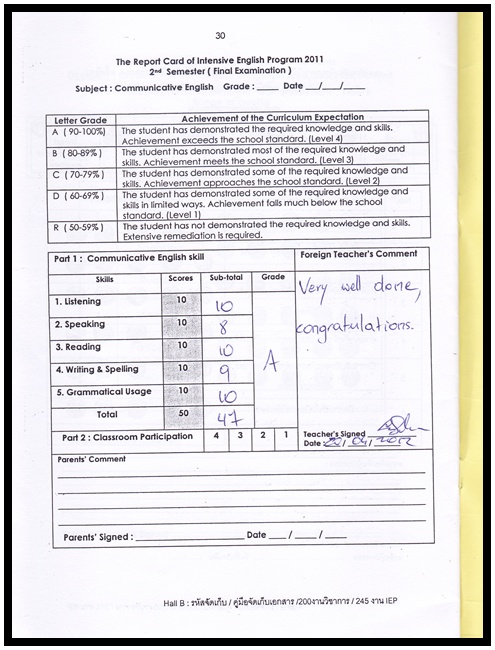 30
The Report Card of Intensive English Program 2011
2nd Semester ( Final Examination )
Subject : Communicative English Grade : ____ Date ___/___/____
Letter Grade Achievement of the Curriculum Expectation
A ( 90-100%) The student has demonstrated the required knowledge and skills.
Achievement exceeds the school standard. (Level 4)
B ( 80-89% ) The student has demonstrated most of the required knowledge and
skills. Achievement meets the school standard. (Level 3)
C ( 70-79% ) The student has demonstrated some of the required knowledge and
skills. Achievement approaches the school standard. (Level 2)
D ( 60-69% ) The student has demonstrated some of the required knowledge and
skills in limited ways. Achievement falls much below the school
standard. (Level 1)
R ( 50-59% ) The student has not demonstrated the required knowledge and skills.
Extensive remediation is required.
Part 1 : Communicative English skill Foreign Teacher's Comment
Skills Scores Sub-total Grade
1. Listening 10 10
2. Speaking 10 8
3. Reading 10 10
4. Writing & Spelling 10 9
5. Grammatical Usage 10 10
Total 50 47
A
Very well done,
congratulations.
Part 2 : Classroom Participation 4 3 2 1
Teacher's Signed
Date :
Parents' Comment
Parents' Signed : ____________________ Date ___ / ___ / ___
Hall B : รหัสจัดเก็บ / คู่มือจัดเก็บเอกสาร /200งานวิชาการ / 245 งาน IEP